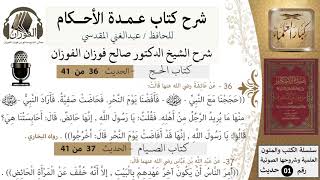 شرح كتاب عمدة الأحكام
للحافظ / عبدالغني المقدسي
شرح الشيخ الدكتور صالح فوزان الفوزان
كتاب الحج
الحديث 36 من 41
36 - عَنْ عَائِشَةَ رضي الله عنها قَالَتْ:
((حَجَجْنَا مَعَ النَّبِيِّ - ﷺ - فَأَفَضْنَا يَوْمَ النَّحْرِ، فَحَاضَتْ صَفِيَّةُ، فَأَرَادَ النَّبِيُّ - ﷺ -
مِنْهَا مَا يُرِيدُ الرَّجُلُ مِنْ أَهْلِهِ. فَقُلْتُ: يَا رَسُولَ اللَّهِ، إنَّهَا حَائِضٌ، قَالَ: أَحَابِسَتُنَا هِيَ؟
قَالُوا: يَا رَسُولَ اللَّهِ، إنَّهَا قَدْ أَفَاضَتْ يَوْمَ النَّحْرِ، قَالَ: اُخْرُجُوا)). رواه البخاري.
كتاب الصيام
الحديث 37 من 41
((أُمِرَ النَّاسُ أَنْ يَكُونَ آخِرُ عَهْدِهِمْ بِالْبَيْتِ، إلاَّ أَنَّهُ خُفِّفَ عَنْ الْمَرْأَةِ الْحَائِضِ))
الفوزان
كبار العلماء
سلسلة الكتب والمتون
العلمية وشروحها الصوتية
رقم 01 حديث